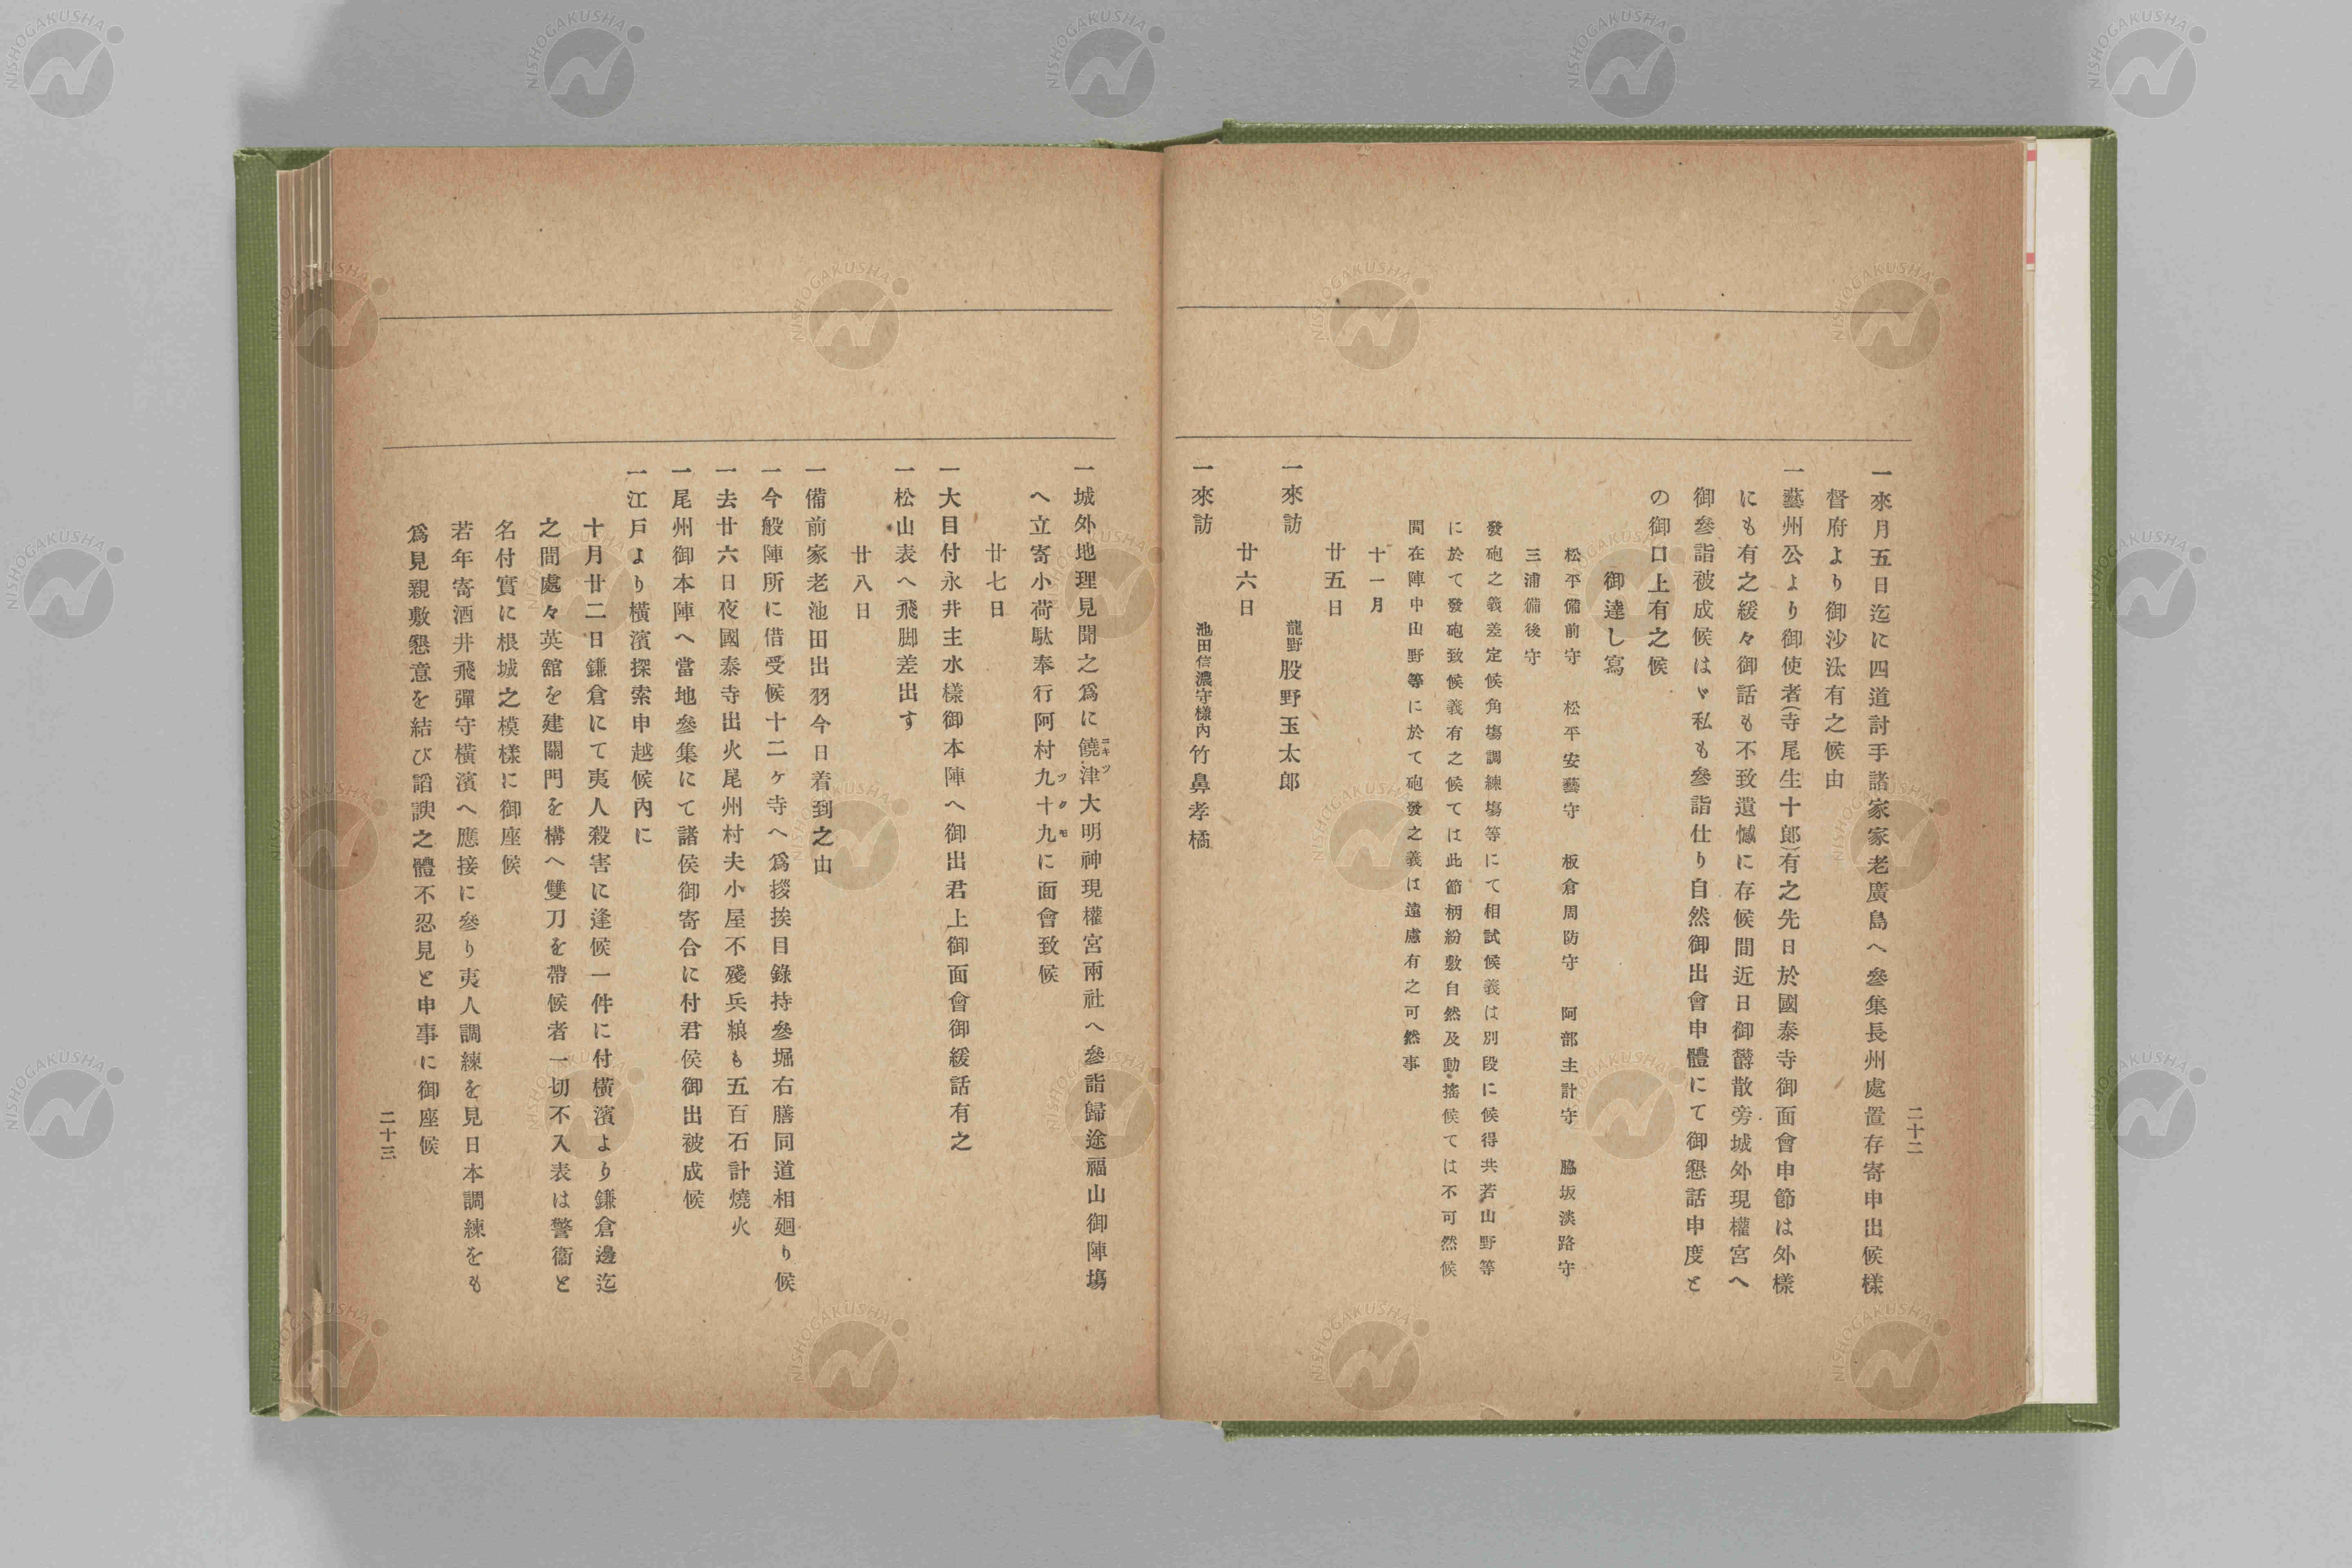 二十二
一來月五日迄に四道討手諸家家老廣島へ參集長州處置存寄申出候樣
督府より御沙汰有之候由
一藝州公より御使者(寺尾生十郎)有之先日於國泰寺御面會申節は外樣
にも有之緩々御話も不致遺憾に存候間近日御欝散旁城外現權宮へ
御參詣被成候はゞ私も參詣仕り自然御出會申體にて御懇話申度と
の御口上有之候
御達し寫
松平備前守 松平安藝守 板倉周防守 阿部主計守 脇坂淡路守
三浦備後守
發砲之義差定候角塲調練塲等にて相試候義は別段に候得共若山野等
に於て發砲致候義有之候ては此節柄紛敷自然及動搖候ては不可然候
間在陣中山野等に於て砲發之義は遠慮有之可然事
十一月
廿五日
一來訪 龍野股野玉太郎
廿六日
一來訪 池田信濃守樣内竹鼻孝橘
一城外地理見聞之爲に饒津大明神現權宮兩社へ參詣歸途福山御陣塲
ニキツ
へ立寄小荷駄奉行阿村九十九に面會致候
ツクモ
廿七日
一大目付永井主水樣御本陣へ御出君上御面會御緩話有之
一松山表へ飛脚差出す
廿八日
一備前家老池田出羽今日着到之由
一今般陣所に借受候十二ヶ寺へ爲挨挨目錄持參堀右膳同道相廻り候
一去廿六日夜國泰寺出火尾州村夫小屋不殘兵粮も五百石計燒火
一尾州御本陣へ當地參集にて諸侯御寄合に付君侯御出被成候
一江戸より横濱探索申越候内に
十月廿二日鎌倉にて夷人殺害に逢候一件に付横濱より鎌倉邊迄
之間處々英舘を建關門を構へ雙刀を帶候者一切不入表は警衞と
名付實に根城之模樣に御座候
若年寄酒井飛彈守横濱へ應接に參り夷人調練を見日本調練をも
爲見親敷懇意を結び謟諛之體不忍見と申事に御座候
二十三
NISHOGAKUSHA